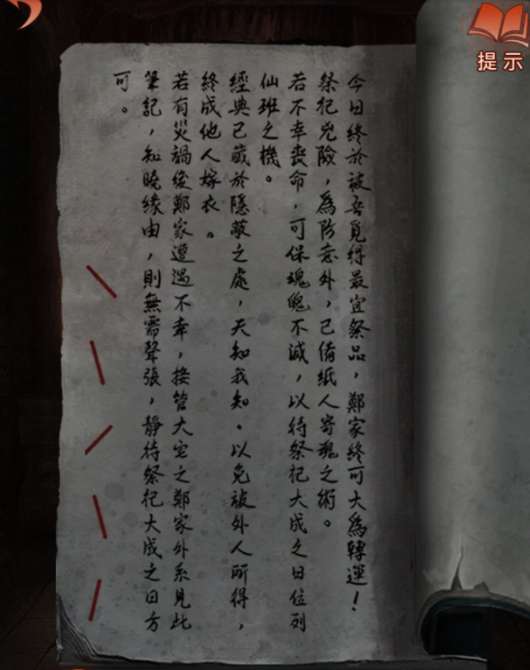 今日終於被吾覓得最宜祭品，鄭家終可大為轉運！
祭祀兇險，為防意外，已備紙人寄魂之術。
若不幸喪命，可保魂魄不滅，以待祭祀大成之日位列
仙班之機。
經典已藏於隱蔽之處，天知我知。以免被外人所得，
終成他人嫁衣。
若有災禍後鄭家遭遇不幸，接管大宅之鄭家外系見此
筆記，知曉緣由，則無需聲張，靜待祭祀大成之日方
可。
提示